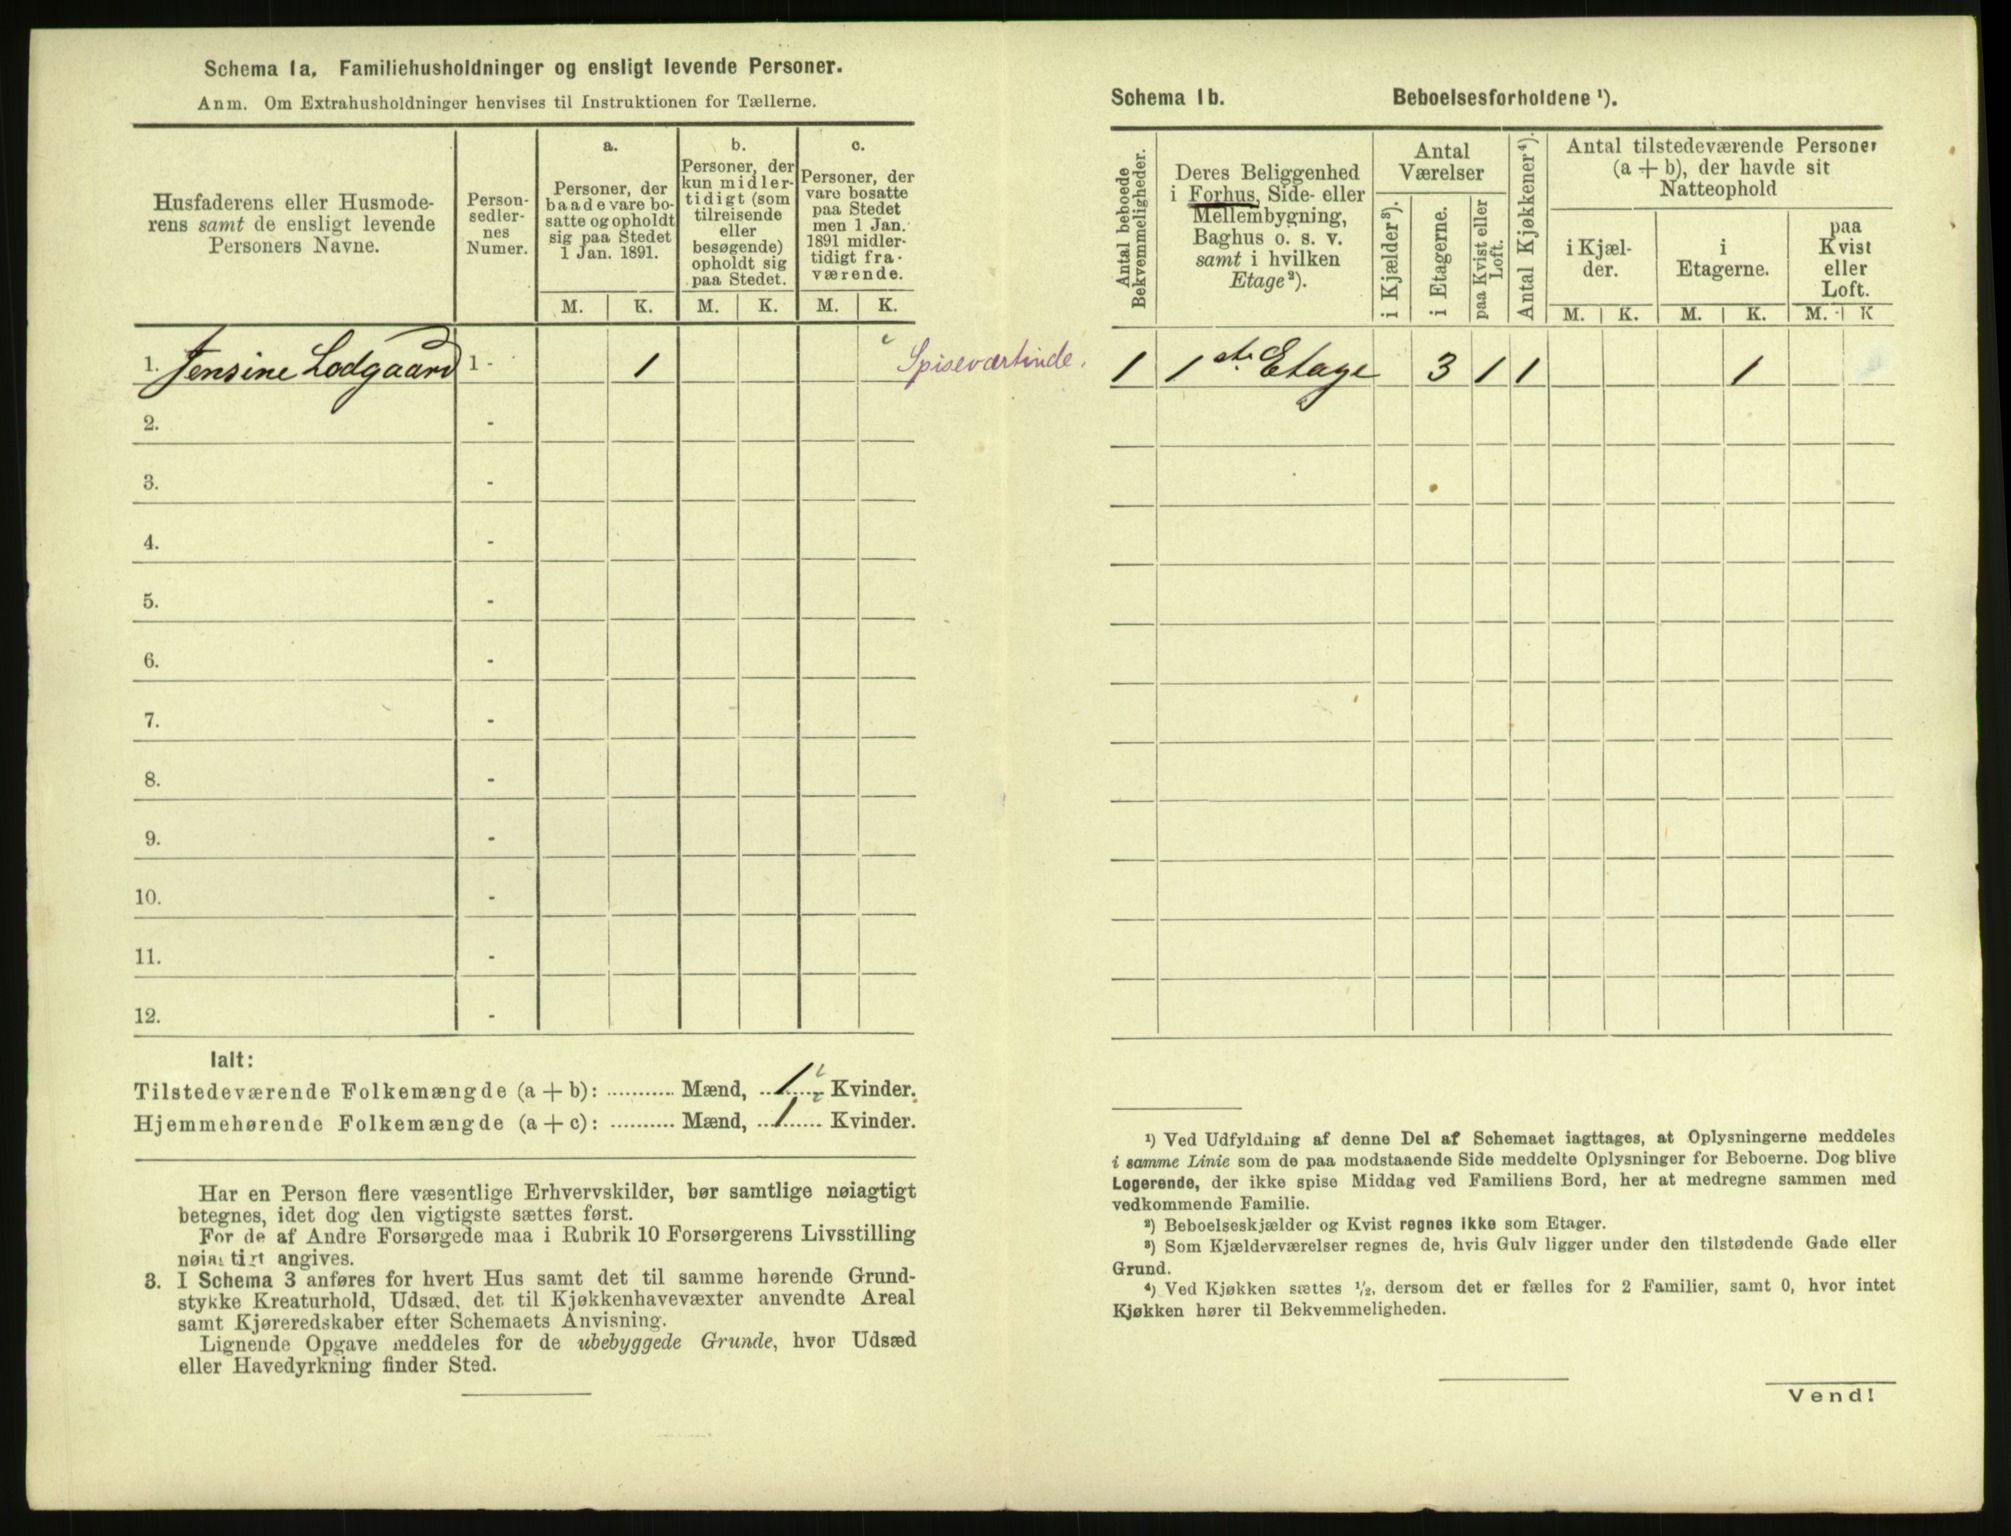 Schema 1a. Familiehusholdninger og ensligt levende Personer.
Anm. Om Extrahusholdninger henvises til Instruktionen for Tællerne.
Husfaderens eller Husmode-
rens samt de ensligt levende
Personers Navne.
Person-
sedler-
nes
Numer.
a.
Personer, der
baade vare bo-
satte og opholdt
sig paa Stedet
1 Jan. 1891.
b.
Personer, der
kun midler-
tidigt (som
tilreisende
eller
besøgende)
opholdt sig
paa Stedet.
c.
Personer, der
vare bosatte
paa Stedet
men 1 Jan.
1891 midler-
tidigt fra-
værende.
M. K. M. K. M. K.
1. Jensine Lodgaard 1 - 1 Spiseværtinde.
2. -
3. -
4. -
5. -
6. -
7. -
8. -
9. -
10. -
11. -
12. -
Ialt:
Tilstedeværende Folkemængde (a + b): .......... Mænd, ...1... Kvinder.
Hjemmehørende Folkemængde (a + c): .......... Mænd, ...1... Kvinder.
Har en Person flere væsentlige Erhvervskilder, bør samtlige nøiagtigt
betegnes, idet dog den vigtigste sættes først.
For de af Andre Forsørgede maa i Rubrik 10 Forsørgerens Livsstilling
nøiagtigt angives.
3. I Schema 3 anføres for hvert Hus samt det til samme hørende Grund-
stykke Kreaturhold, Udsæd, det til Kjøkkenhavevæxter anvendte Areal
samt Kjøreredskaber efter Schemaets Anvisning.
Lignende Opgave meddeles for de ubebyggede Grunde, hvor Udsæd
eller Havedyrkning finder Sted.
Schema 1b. Beboelsesforholdene ¹).
Antal beboede
Bekvemmeligheder.
Deres Beliggenhed
i Forhus, Side- eller
Mellembygning,
Baghus o. s. v.
samt i hvilken
Etage²).
Antal
Værelser
i Kjælder³).
i Etagerne.
paa Kvist eller
Loft.
Antal Kjøkkener⁴).
Antal tilstedeværende Personer
(a + b), der havde sit
Natteophold
i Kjæl-
der.
i
Etagerne.
paa
Kvist
eller
Loft.
M. K. M. K. M. K
1 1ste Etage 3 1 1 1
¹) Ved Udfyldning af denne Del af Schemaet iagttages, at Oplysningerne meddeles
i samme Linie som de paa modstaaende Side meddelte Oplysninger for Beboerne. Dog blive
Logerende, der ikke spise Middag ved Familiens Bord, her at medregne sammen med
vedkommende Familie.
²) Beboelseskjælder og Kvist regnes ikke som Etager.
³) Som Kjælderværelser regnes de, hvis Gulv ligger under den tilstødende Gade eller
Grund.
⁴) Ved Kjøkken sættes ¹/₂, dersom det er fælles for 2 Familier, samt 0, hvor intet
Kjøkken hører til Bekvemmeligheden.
Vend!